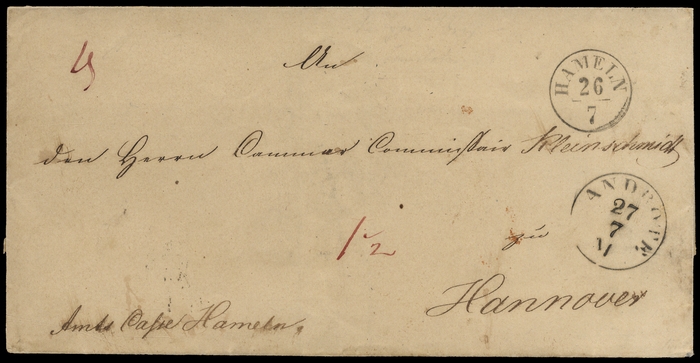 An
HAMELN
26
7
den Herrn Cammer Commissair Kleinschmidt
27
7
1/2
zu
Hannover
Amts Casse Hameln.